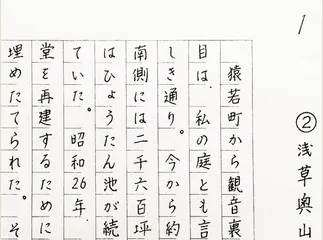 1
② 浅草奥山
猿若町から観音裏
目は、私の庭とも言
しき通り。今から約
南側には二千六百坪
はひょうたん池が続
ていた。昭和26年
堂を再建するために
埋めたてられた。そ